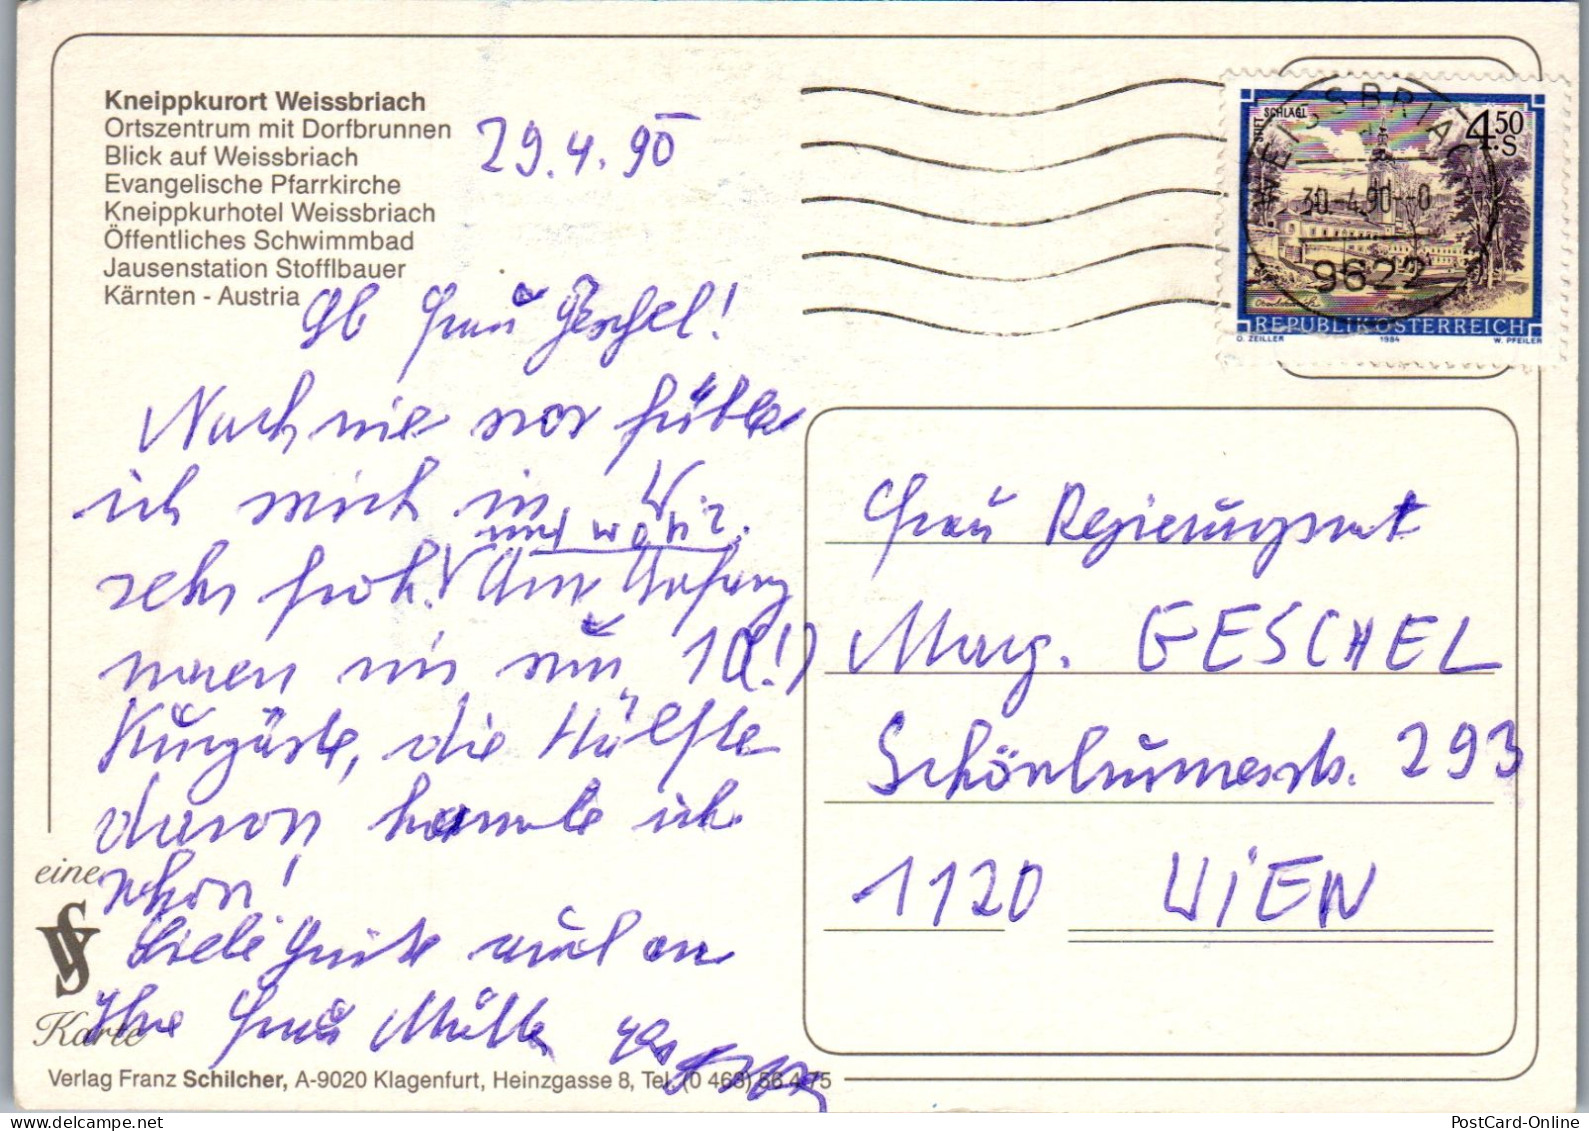 Kneippkurort Weissbriach
Ortszentrum mit Dorfbrunnen
Blick auf Weissbriach
Evangelische Pfarrkirche
Kneippkurhotel Weissbriach
Öffentliches Schwimmbad
Jausenstation Stofflbauer
Kärnten - Austria
29.4.90
STIFT SCHLÄGL
4.50
S
WEISSBRIACH
30.-4.90--0
9622
REPUBLIK ÖSTERREICH
O. ZEILLER 1984 W. PFEILER
Lb Frau Geschel!
Nach wie vor fühle
ich mich in W.
und wohl
sehr froh! Am Anfang
waren wir nur 10(!)
Kurgäste, die Hälfte
davon kannte ich
schon!
Liebe Grüße auch an
Ihre Frau Mutter
Frau Regierungsrat
Marg. GESCHEL
Schönbrunnerstr. 293
1120 WiEN
eine
Karte
Verlag Franz Schilcher, A-9020 Klagenfurt, Heinzgasse 8, Tel. (0 463) 56 4 75
PostCard-Online